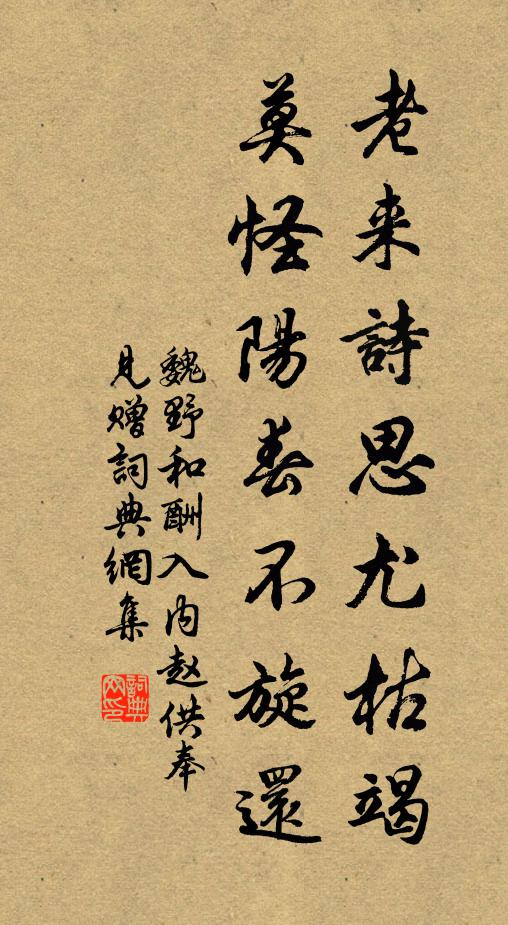 老来詩思尤枯竭
莫怪陽春不旋還
魏野和酬入内赵供奉
見赠詞典網集
詞典網印